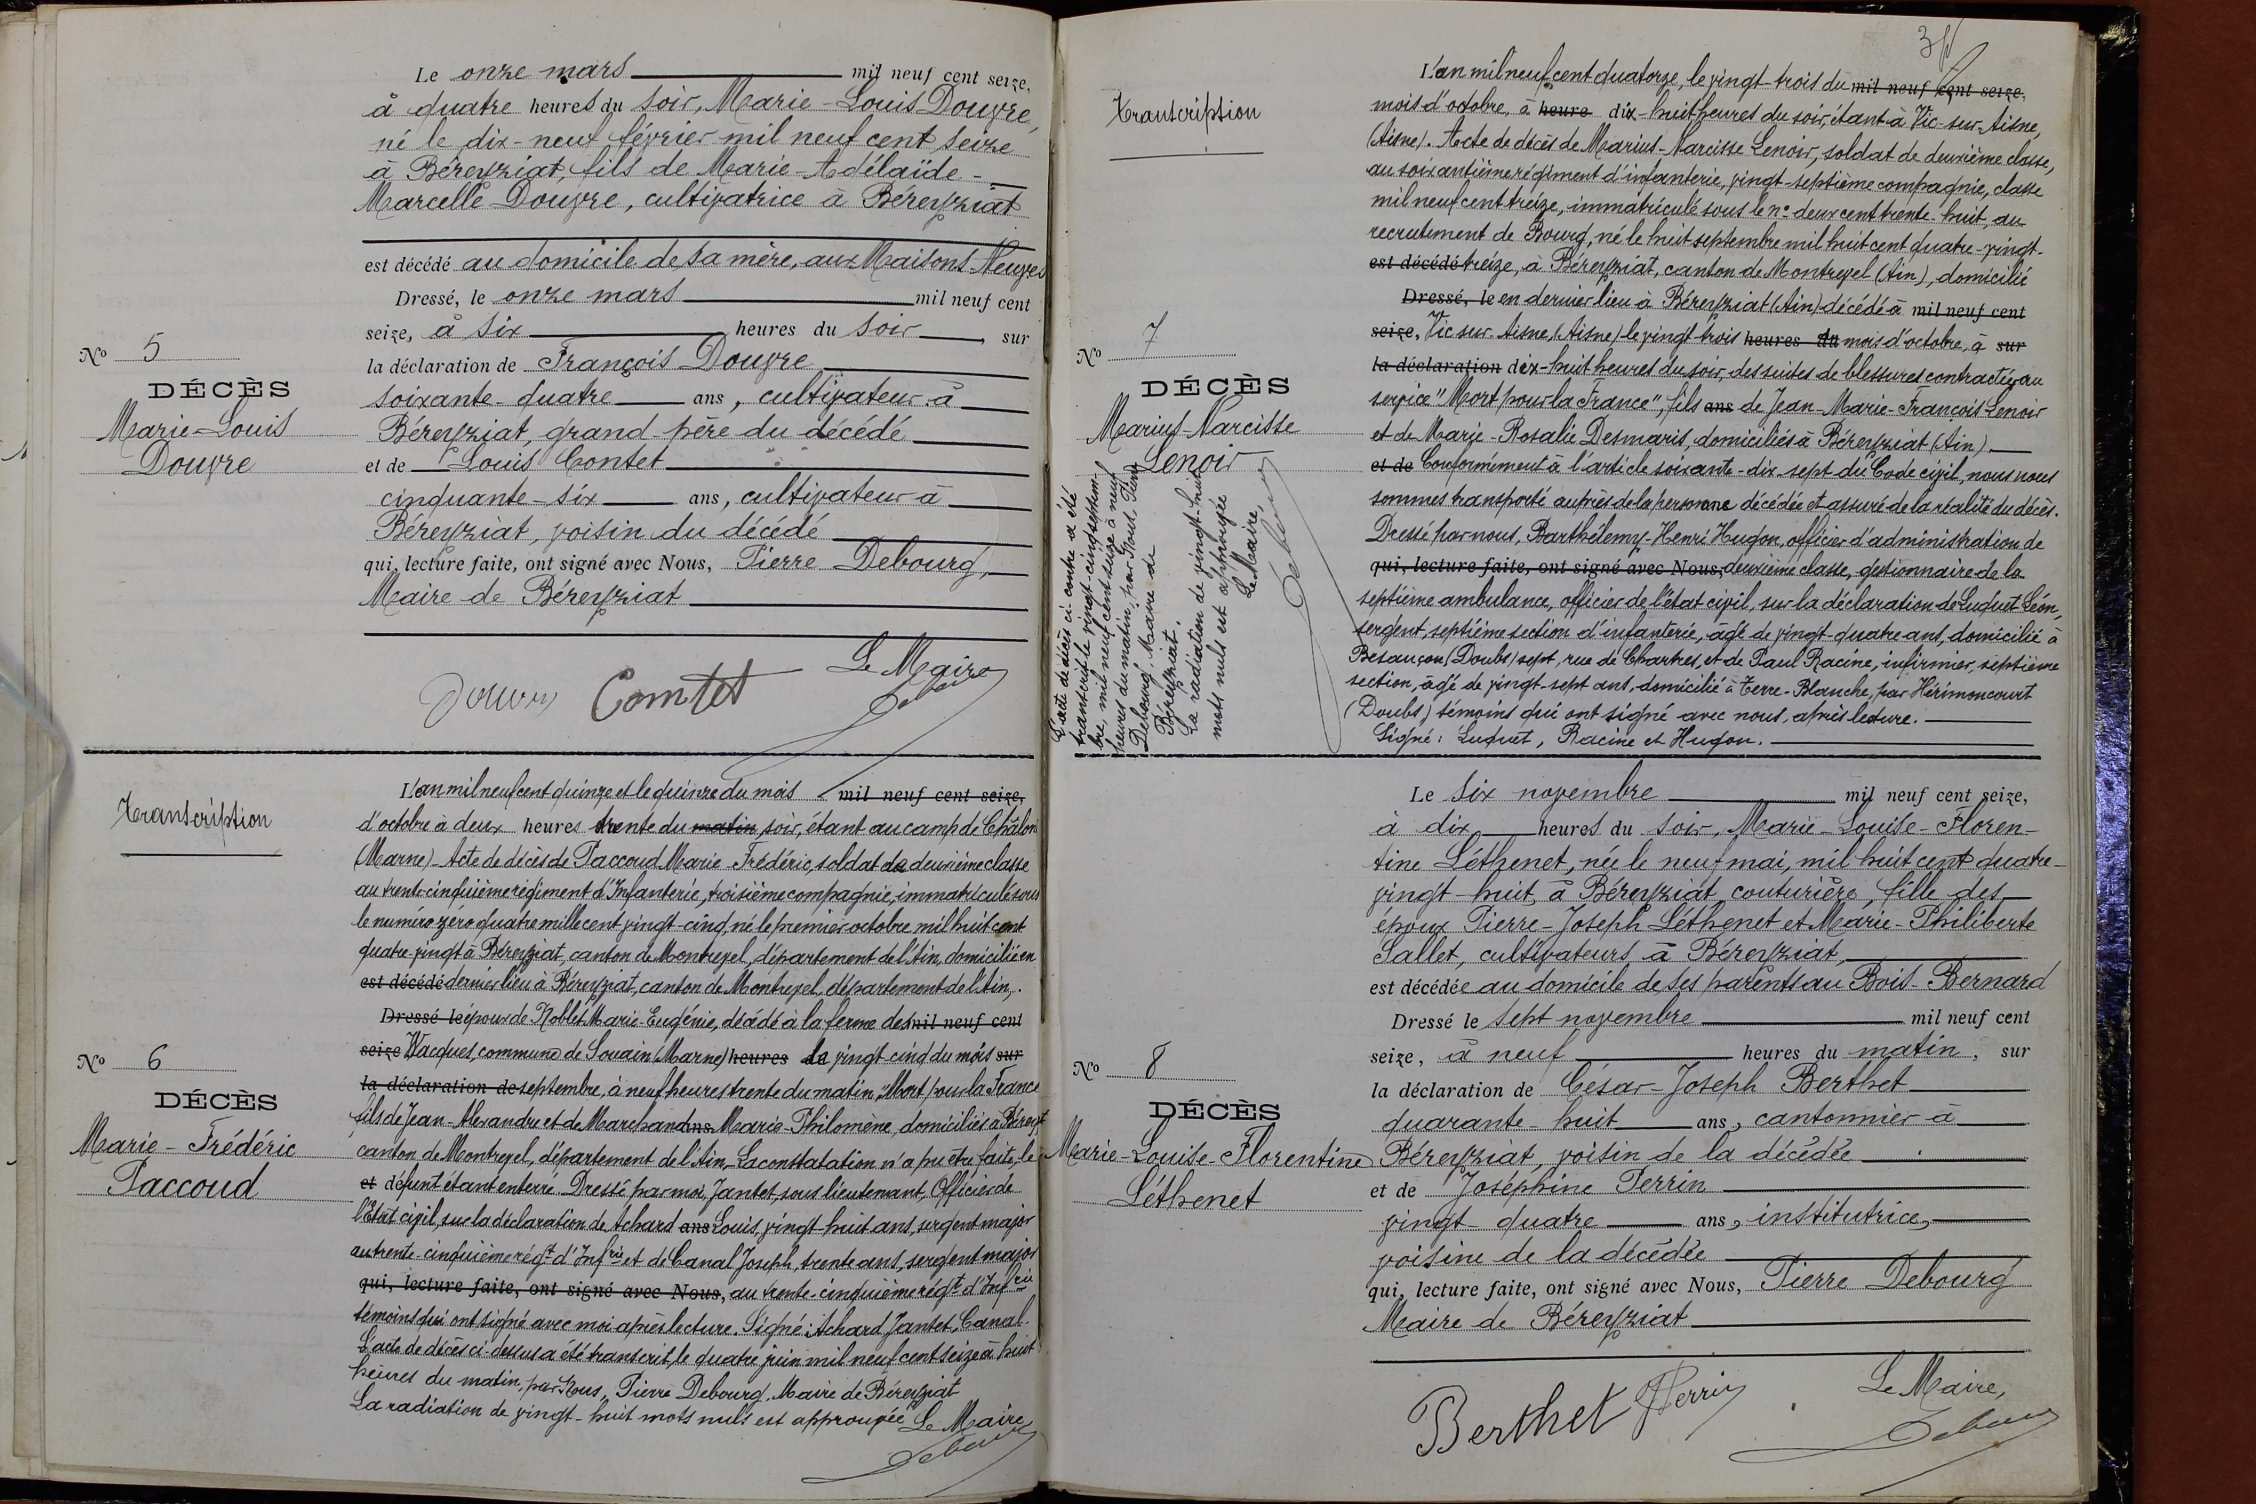 Le onze mars mil neuf cent seize,
à quatre heures du soir, Marie-Louis Douvre,
né le dix-neuf février mil neuf cent seize
à Béreyziat, fils de Marie-Adélaïde-
Marcelle Douvre, cultivatrice à Béreyziat
est décédé au domicile de sa mère, aux Maisons Neuves
Dressé, le onze mars mil neuf cent
seize, à six heures du soir, sur
la déclaration de François Douvre
soixante-quatre ans, cultivateur à
Béreyziat, grand-père du décédé
et de Louis Contet
cinquante-six ans, cultivateur à
Béreyziat, voisin du décédé
qui, lecture faite, ont signé avec Nous, Pierre Debourg,
Maire de Béreyziat
Le Maire
Comtet
No 5
DÉCÈS
Marie-Louis
Douvre
Transcription
No 6
DÉCÈS
Marie-Frédéric
Paccoud
L'an mil neuf cent quinze et le quinze du mois mil neuf cent seize,
d'octobre à deux heures trente du matin soir, étant au camp de Châlons
(Marne) - Acte de décès de Paccoud Marie-Frédéric, soldat de deuxième classe
au trente-cinquième régiment d'Infanterie, troisième compagnie, immatriculé sous
le numéro zéro quatre mille cent vingt-cinq, né le premier octobre mil huit cent
quatre-vingt à Béreyziat, canton de Montrevel, département de l'Ain, domicilié en
est décédé dernier lieu à Béreyziat, canton de Montrevel, département de l'Ain,.
Dressé le époux de Noblet Marie-Eugénie, décédé à la ferme des mil neuf cent
seize Wacques, commune de Souain (Marne) heures le vingt-cinq du mois sur
la déclaration de septembre, à neuf heures trente du matin, "Mort pour la France
fils de Jean-Alexandre et de Marchand ans Marie-Philomène, domiciliés à Béreyt
canton de Montrevel, département de l'Ain, La constatation n'a pu être faite, le
et défunt étant enterré. Dressé par moi, Jantet, sous lieutenant, Officier de
l'Etat civil, sur la déclaration de Achard ans Louis, vingt-huit ans, sergent major
au trente-cinquième régt d'Infrie et de Canal Joseph, trente ans, sergent major
qui, lecture faite, ont signé avec Nous, au trente-cinquième régt d'Infrie
témoins qui ont signé avec moi après lecture. Signé: Achard, Jantet, Canal.
L'acte de décès ci-dessus a été transcrit, le quatre juin mil neuf cent seize à huit
heures du matin, par Nous, Pierre Debourg, Maire de Béreyziat
La radiation de vingt-huit mots nuls est approuvée Le Maire
Transcription
No 7
DÉCÈS
Marius-Narcisse
Lenoir
L'acte de décès ci-contre a été
transcrit le vingt-cinq septem-
bre, mil neuf cent seize à neuf
heures du matin, par Nous, Pierre
Debourg, Maire de
Béreyziat.
La radiation de vingt-huit
mots nuls est approuvée
Le Maire,
L'an mil neuf cent quatorze, le vingt-trois du mil neuf cent seize,
mois d'octobre, à heure dix-huit heures du soir, étant à Vic-sur-Aisne,
(Aisne). Acte de décès de Marius-Narcisse Lenoir, soldat de deuxième classe,
au soixantième régiment d'infanterie, vingt-septième compagnie, classe
mil neuf cent treize, immatriculé sous le n° deux cent trente-huit, au
recrutement de Bourg, né le huit septembre mil huit cent quatre-vingt-
est décédé treize, à Béreyziat, canton de Montrevel (Ain), domicilié
Dressé, le en dernier lieu à Béreyziat (Ain) décédé à mil neuf cent
seize, Vic sur Aisne, (Aisne) le vingt-trois heures du mois d'octobre, à sur
la déclaration dix-huit heures du soir, des suites de blessures contractées au
service "Mort pour la France", fils ans de Jean-Marie-François Lenoir
et de Marie-Rosalie Desmaris, domiciliés à Béreyziat (Ain).
et de Conformément à l'article soixante-dix-sept du Code civil, nous nous
sommes transporté auprès de la personne décédée et assuré de la réalité du décès.
Dressé par nous, Barthélemy-Henri Hugon, officier d'administration de
qui, lecture faite, ont signé avec Nous, deuxième classe, gestionnaire de la
septième ambulance, officier de l'état civil, sur la déclaration de Luquet Léon,
sergent, septième section d'infanterie, âgé de vingt-quatre ans, domicilié à
Besançon (Doubs) sept, rue de Chartres, et de Paul Racine, infirmier, septième
section, âgé de vingt-sept ans, domicilié à Terre-Blanche, par Hérimoncourt
(Doubs) témoins qui ont signé avec nous, après lecture.
Signé: Luquet, Racine et Hugon.
No 8
DÉCÈS
Marie-Louise-Florentine
Léthenet
Le six novembre mil neuf cent seize,
à dix heures du soir, Marie-Louise-Floren-
tine Léthenet, née le neuf mai, mil huit cent quatre-
vingt-huit, à Béreyziat, couturière, fille des
époux Pierre-Joseph Léthenet et Marie-Philiberte
Sallet, cultivateurs à Béreyziat,
est décédée au domicile de ses parents au Bois-Bernard
Dressé le sept novembre mil neuf cent
seize, à neuf heures du matin, sur
la déclaration de César-Joseph Berthet
quarante-huit ans, cantonnier à
Béreyziat, voisin de la décédée
et de Joséphine Perrin
vingt-quatre ans, institutrice,
voisine de la décédée
qui, lecture faite, ont signé avec Nous, Pierre Debourg
Maire de Béreyziat
Le Maire,
Berthet JPerrin